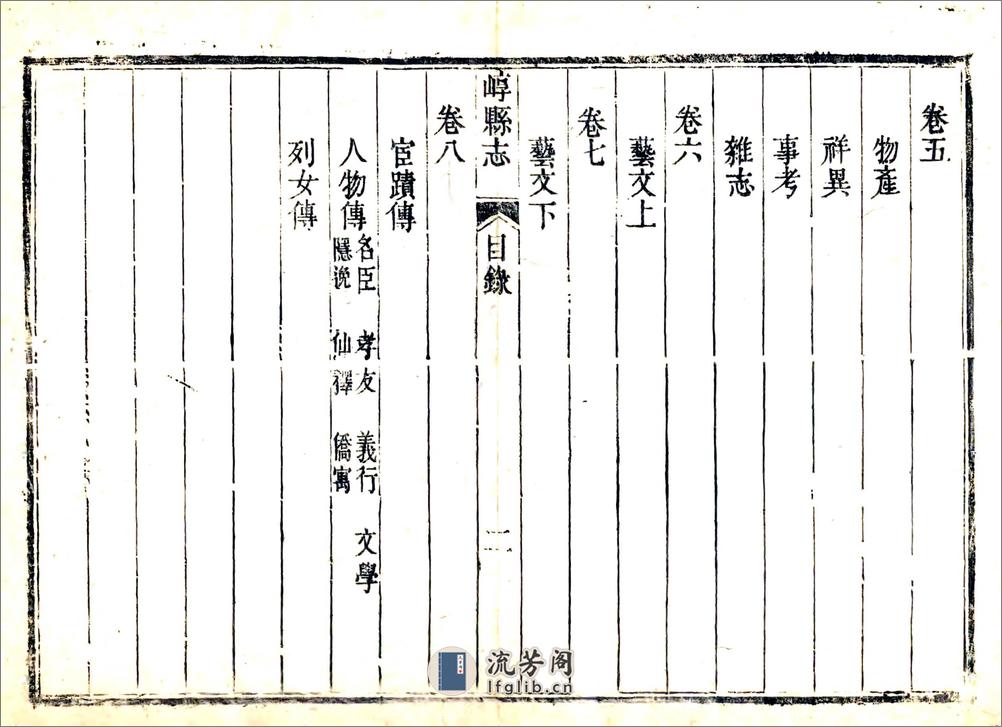 卷五
物產
祥異
事考
雜志
卷六
藝文上
卷七
藝文下
崞縣志
目錄
二
卷八
宦蹟傳
人物傳
名臣 孝友 義行 文學
隱逸 仙釋 僑寓
列女傳
流芳阁
lfglib.cn